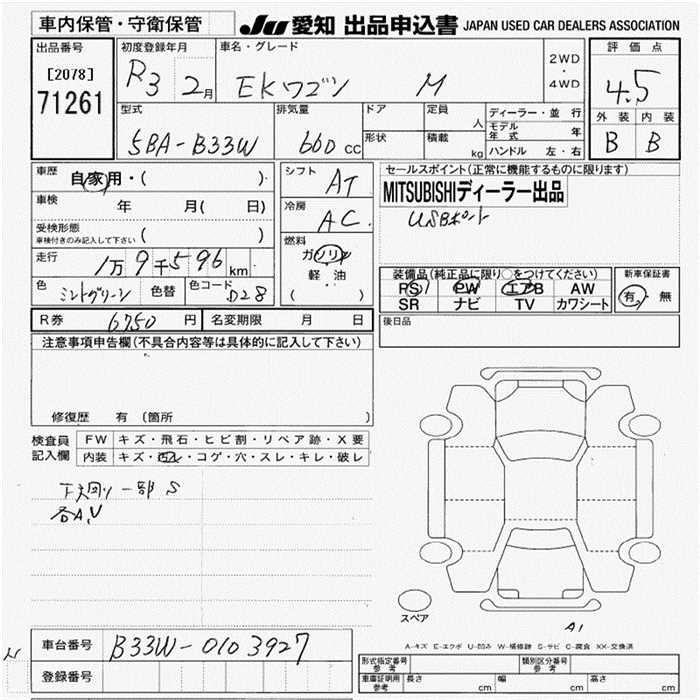 車内保管・守衛保管
JU 愛知 出品申込書 JAPAN USED CAR DEALERS ASSOCIATION
出品番号
[2078]
71261
初度登録年月
R3 2月
車名・グレード
EKワゴン M
2WD
・
4WD
評価点
4.5
外装 内装
B B
型式
5BA-B33W
排気量
660 CC
ドア
形状
定員 人
積載 kg
ディーラー・並行
モデル年式 年
ハンドル 左・右
車歴 自家用・( )
車検 年 月( 日)
受検形態
車検付きのみ記入して下さい ( )
走行 1万9千596km
色 ミントグリーン 色替 色コード D28
シフト AT
冷房 AC
燃料
ガソリン
軽油
( )
セールスポイント(正常に機能するものに限ります)
MITSUBISHIディーラー出品
USBポート
装備品(純正品に限り○をつけてください)
PS PW エアB AW
SR ナビ TV カワシート
新車保証書
有・無
R券 6750円 名変期限 月 日
後日品
注意事項申告欄(不具合内容等は具体的に記入して下さい)
修復歴 有 (箇所 )
検査員記入欄
FW キズ・飛石・ヒビ割・リペア跡・X要
内装 キズ・凹ミ・コゲ・穴・スレ・キレ・破レ
下廻り一部S
各A,U
スペア
A1
A-キズ E-エクボ U-凹み W-補修跡 S-サビ C-腐食 XX-交換済
車台番号 B33W-0103927
登録番号
型式指定番号 参考
類別区分番号 参考
車庫証明用 参考 長さ cm 幅 cm 高さ cm